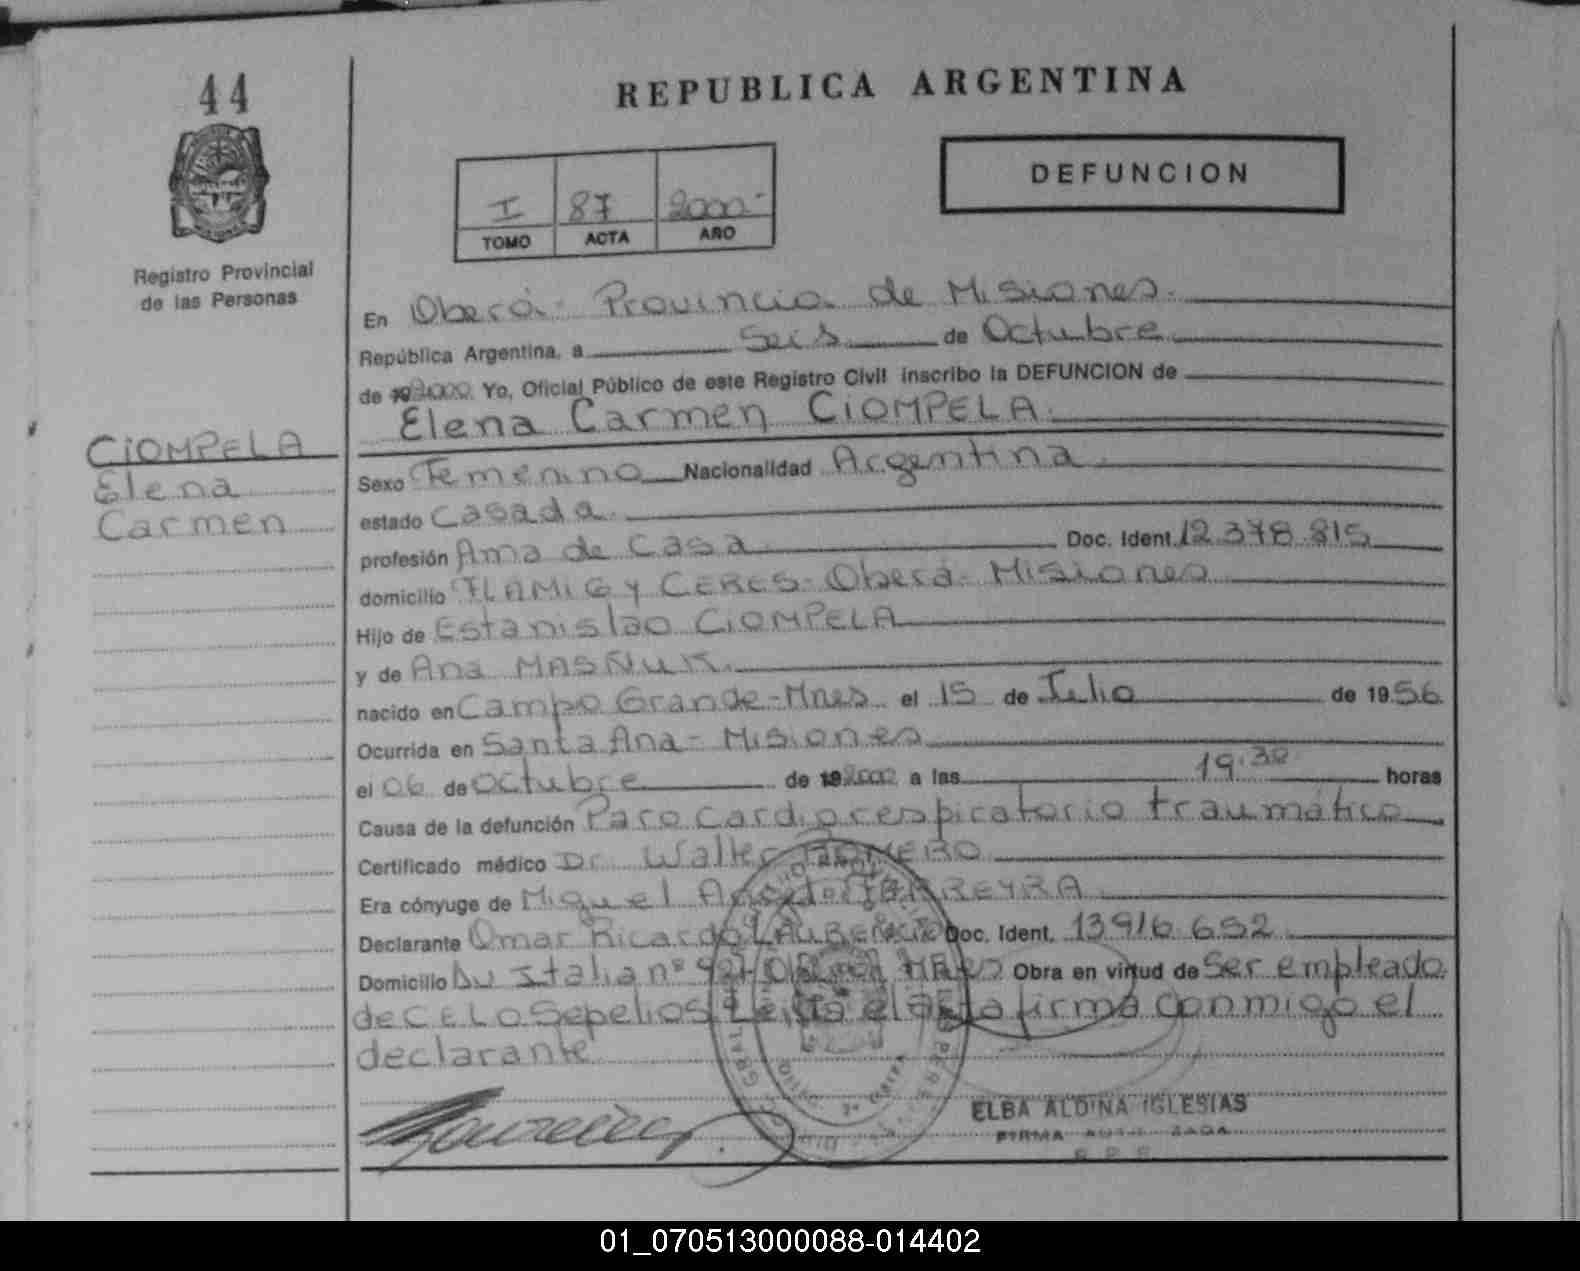 44
REPUBLICA ARGENTINA
DEFUNCION
I 87 2000-
TOMO ACTA AÑO
Registro Provincial
de las Personas
En Oberá- Provincia de Misiones.
República Argentina, a Seis de Octubre
de 192000. Yo, Oficial Público de este Registro Civil inscribo la DEFUNCION de
Elena Carmen CIOMPELA.
CIOMPELA
Elena
Carmen
Sexo Femenino Nacionalidad Argentina.
estado Casada.
profesión Ama de Casa Doc. Ident. 12.378.815
domicilio FLAMIG y CERES- Oberá- Misiones
Hijo de Estanislao CIOMPELA
y de Ana MASÑUK.
nacido en Campo Grande-Mnes el 15 de Julio de 1956
Ocurrida en Santa Ana- Misiones
el 06 de Octubre de 192000 a las 19:30 horas
Causa de la defunción Paro Cardiorespiratorio traumático
Certificado médico Dr. Walter ROMERO
Era cónyuge de Miguel FERREYRA
Declarante Omar Ricardo Doc. Ident. 13.916.652
Domicilio Av Italia nº Obra en virtud de Ser empleado
de CELO Sepelios. Leida el acta firma conmigo el
declarante
ELBA ALDINA IGLESIAS
FIRMA AUTORIZADA
R. P. P.
01_070513000088-014402